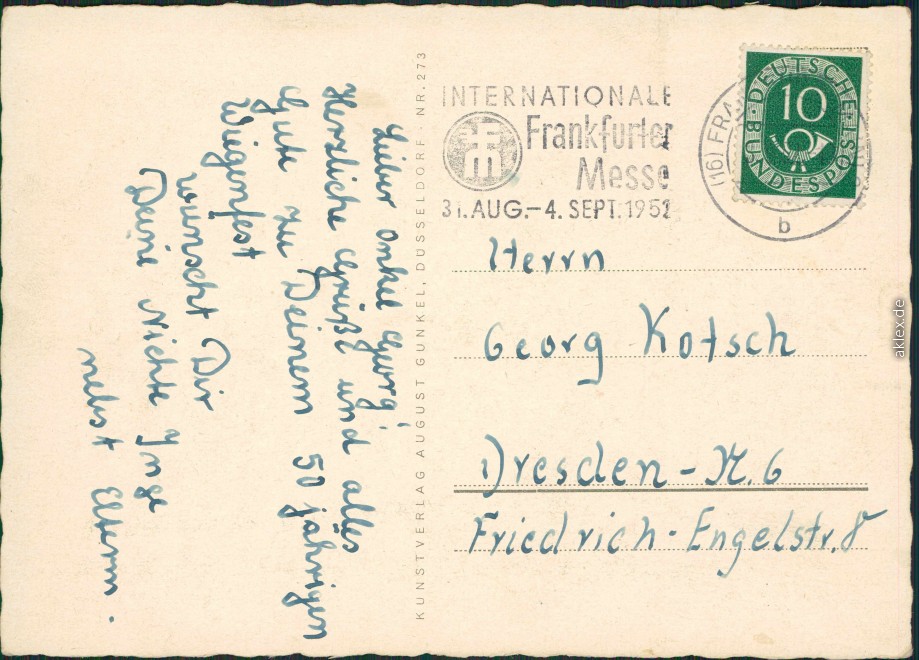 Lieber Onkel Georg!
Herzliche Grüße und alles
Gute zu Deinem 50 jährigen
Wiegenfest
wünscht Dir
Deine Nichte Inge
nebst Eltern.
KUNSTVERLAG AUGUST GUNKEL, DÜSSELDORF · NR. 273
INTERNATIONALE
Frankfurter
Messe
31. AUG.–4. SEPT. 1952
(16) FRA
b
DEUTSCHE POST
BUNDESPOST
10
Herrn
Georg Kotsch
Dresden-N. 6
Friedrich-Engelstr. 8
aklex.de